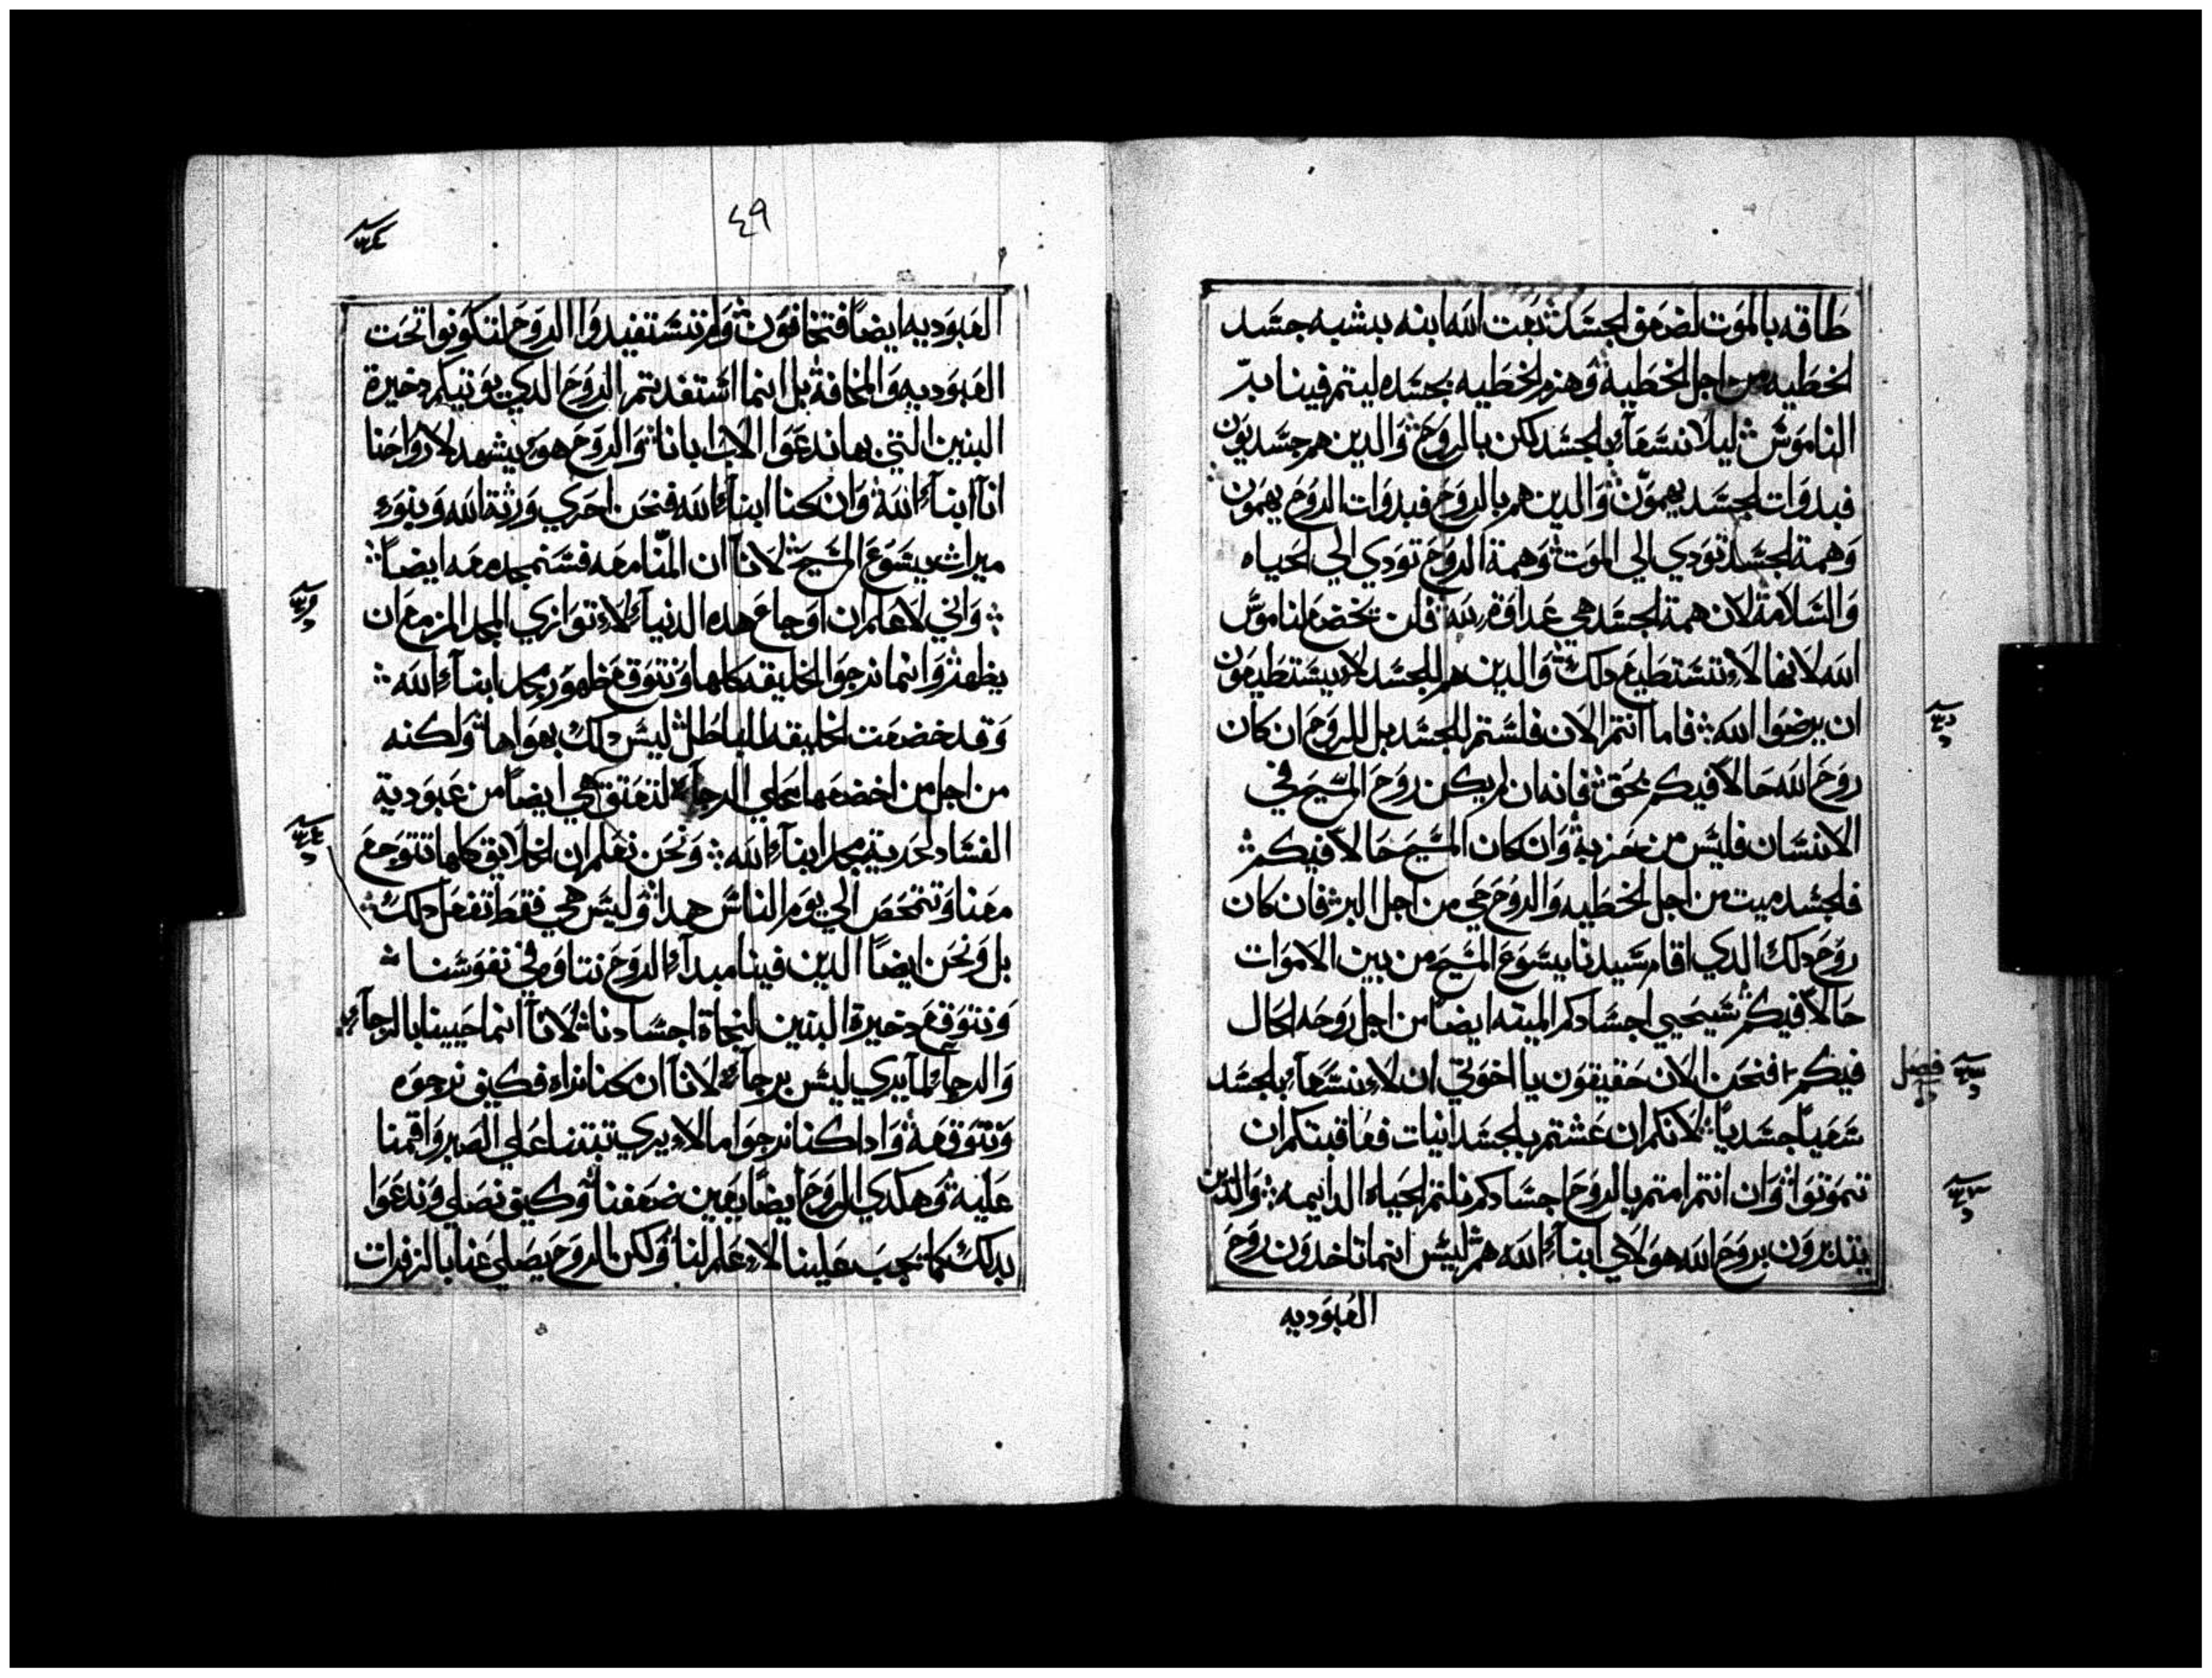 طاقه بالموت لضعف الجسد بعت الله ابنه بشبه جسد
الخطيه من اجل الخطية وهزم الخطيه بجسده ليتم فينا بر
الناموس ليلا نسعآ بالجسد لكن بالروح والدين هم جسديون
فبدوات الجسد يهمون والدين هم بالروح فبدوات الروح يهمون
وهمة الجسد تودي الي الموت وهمة الروح تودي الي الحياه
والسلامة لان همة الجسد هي عداوة لله فلن تخضع لناموس
الله لانها لا تستطيع دلك والدين هم للجسد لا يستطيعون
ان يرضوا الله فاما انتم الان فلستم للجسد بل للروح ان كان
روح الله حالا فيكم بحق فانه ان لم يكن روح المسيح في
الانسان فليس من حزبه وان كان المسيح حالا فيكم
فالجسد ميت من اجل الخطيه والروح حي من اجل البر فان كان
روح دلك الدي اقام سيدنا يسوع المسيح من بين الاموات
حالا فيكم سيحيي اجسادكم الميته ايضا من اجل روحه الحال
فيكم فنحن الان حقيقون يا اخوتي ان لا نسعآ بالجسد
فصل
سعيا جسديا لانكم ان عشتم بالجسدانيات فعاقبتكم ان
تموتوا وان انتم امتم بالروح اجسادكم نلتم الحياه الدايمه والدين
يتدبرون بروح الله هولاي ابنآ الله هم ليس انما تاخدون روح
العبوديه
٤٩
العبوديه ايضا فتخافون ولم تستفيدوا الروح لتكونوا تحت
العبوديه والمخافة بل انما استفدتم الروح الدي يوتيكم دخيرة
البنين التي بها ندعوا الاب ابانا والروح هو يشهد لارواحنا
انآ ابنآ الله وان كنا ابنآ الله فنحن احري ورثة الله وبنو
ميراث يسوع المسيح لانآ ان المنا معه فسنمجد معه ايضا
واني لاعلم ان اوجاع هده الدنيآ لا توازي المجد المزمع ان
يظهر وانما ترجوا الخليقه كلها وتتوقع ظهور مجد ابنآ الله
وقد خضعت الخليقه للباطل ليس دلك بهواها ولكنه
من اجل من اخضعها علي الرجآ لتعتق هي ايضا من عبودية
الفساد لحرية مجد ابنآ الله ونحن نعلم ان الخلايق كلها تتوجع
معنا وتتمخض الي يوم الناس هدا وليس هي فقط تفعل دلك
بل ونحن ايضا الدين فينا مبدآ الروح نتاوه في نفوسنا
ونتوقع دخيرة البنين لنجاة اجسادنا لانآ انما حيينا بالرجآ
والرجآ لما يري ليس برجآ لانآ ان كنا نراه فكيف نرجوه
ونتوقعه وادا كنا نرجوا ما لا يري تبتنا علي الصبر واقمنا
عليه وهكدي الروح ايضا يعين ضعفنا وكيف نصلي وندعوا
بدلك كما يجب علينا لا علم لنا ولكن الروح يصلي عنا بالزفرات